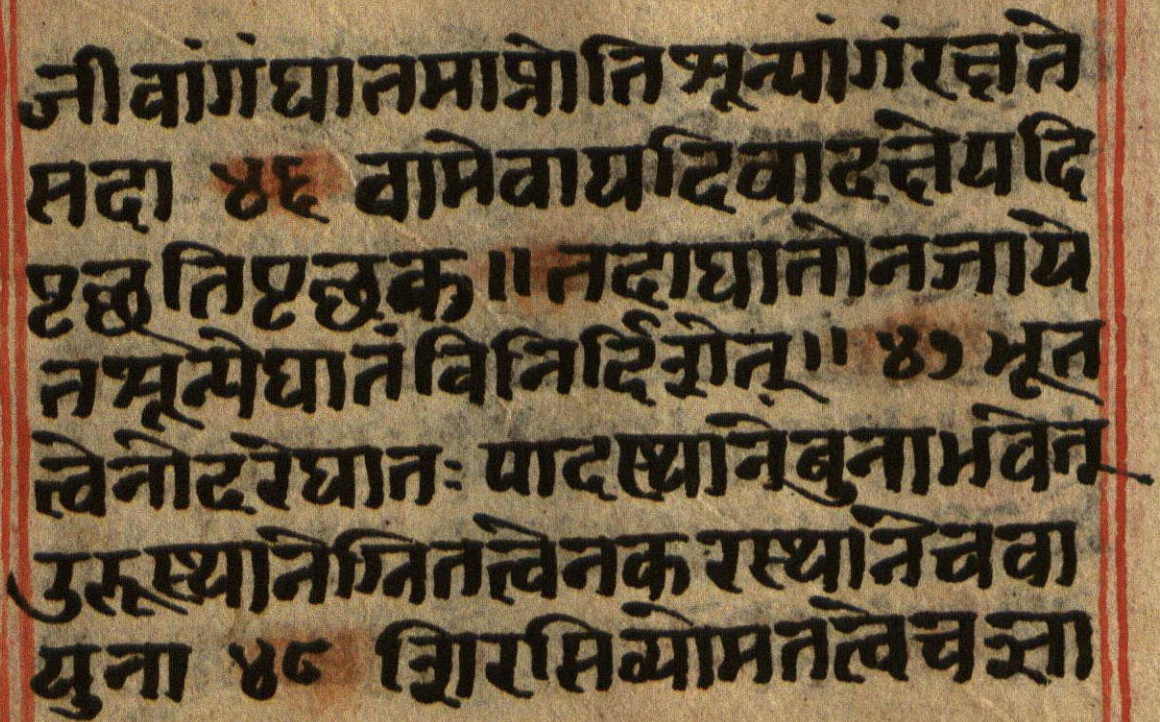 जीवांगंघातमाप्नोतिश्रून्यांगंरक्षते
सदा ४६ वामेवायदिवादक्षेयदि
पृछतिपृछक॥तदाघातोनजाये
तश्रून्येघातंविनिर्दिशेत्॥ ४७ भूत
त्वेनोदरेघातः पादस्थानेबुनाभवेत्
उरूस्थानेग्नितत्वेनकरस्थानेचवा
युना ४८ शिरसिव्योमतत्वेचज्ञा